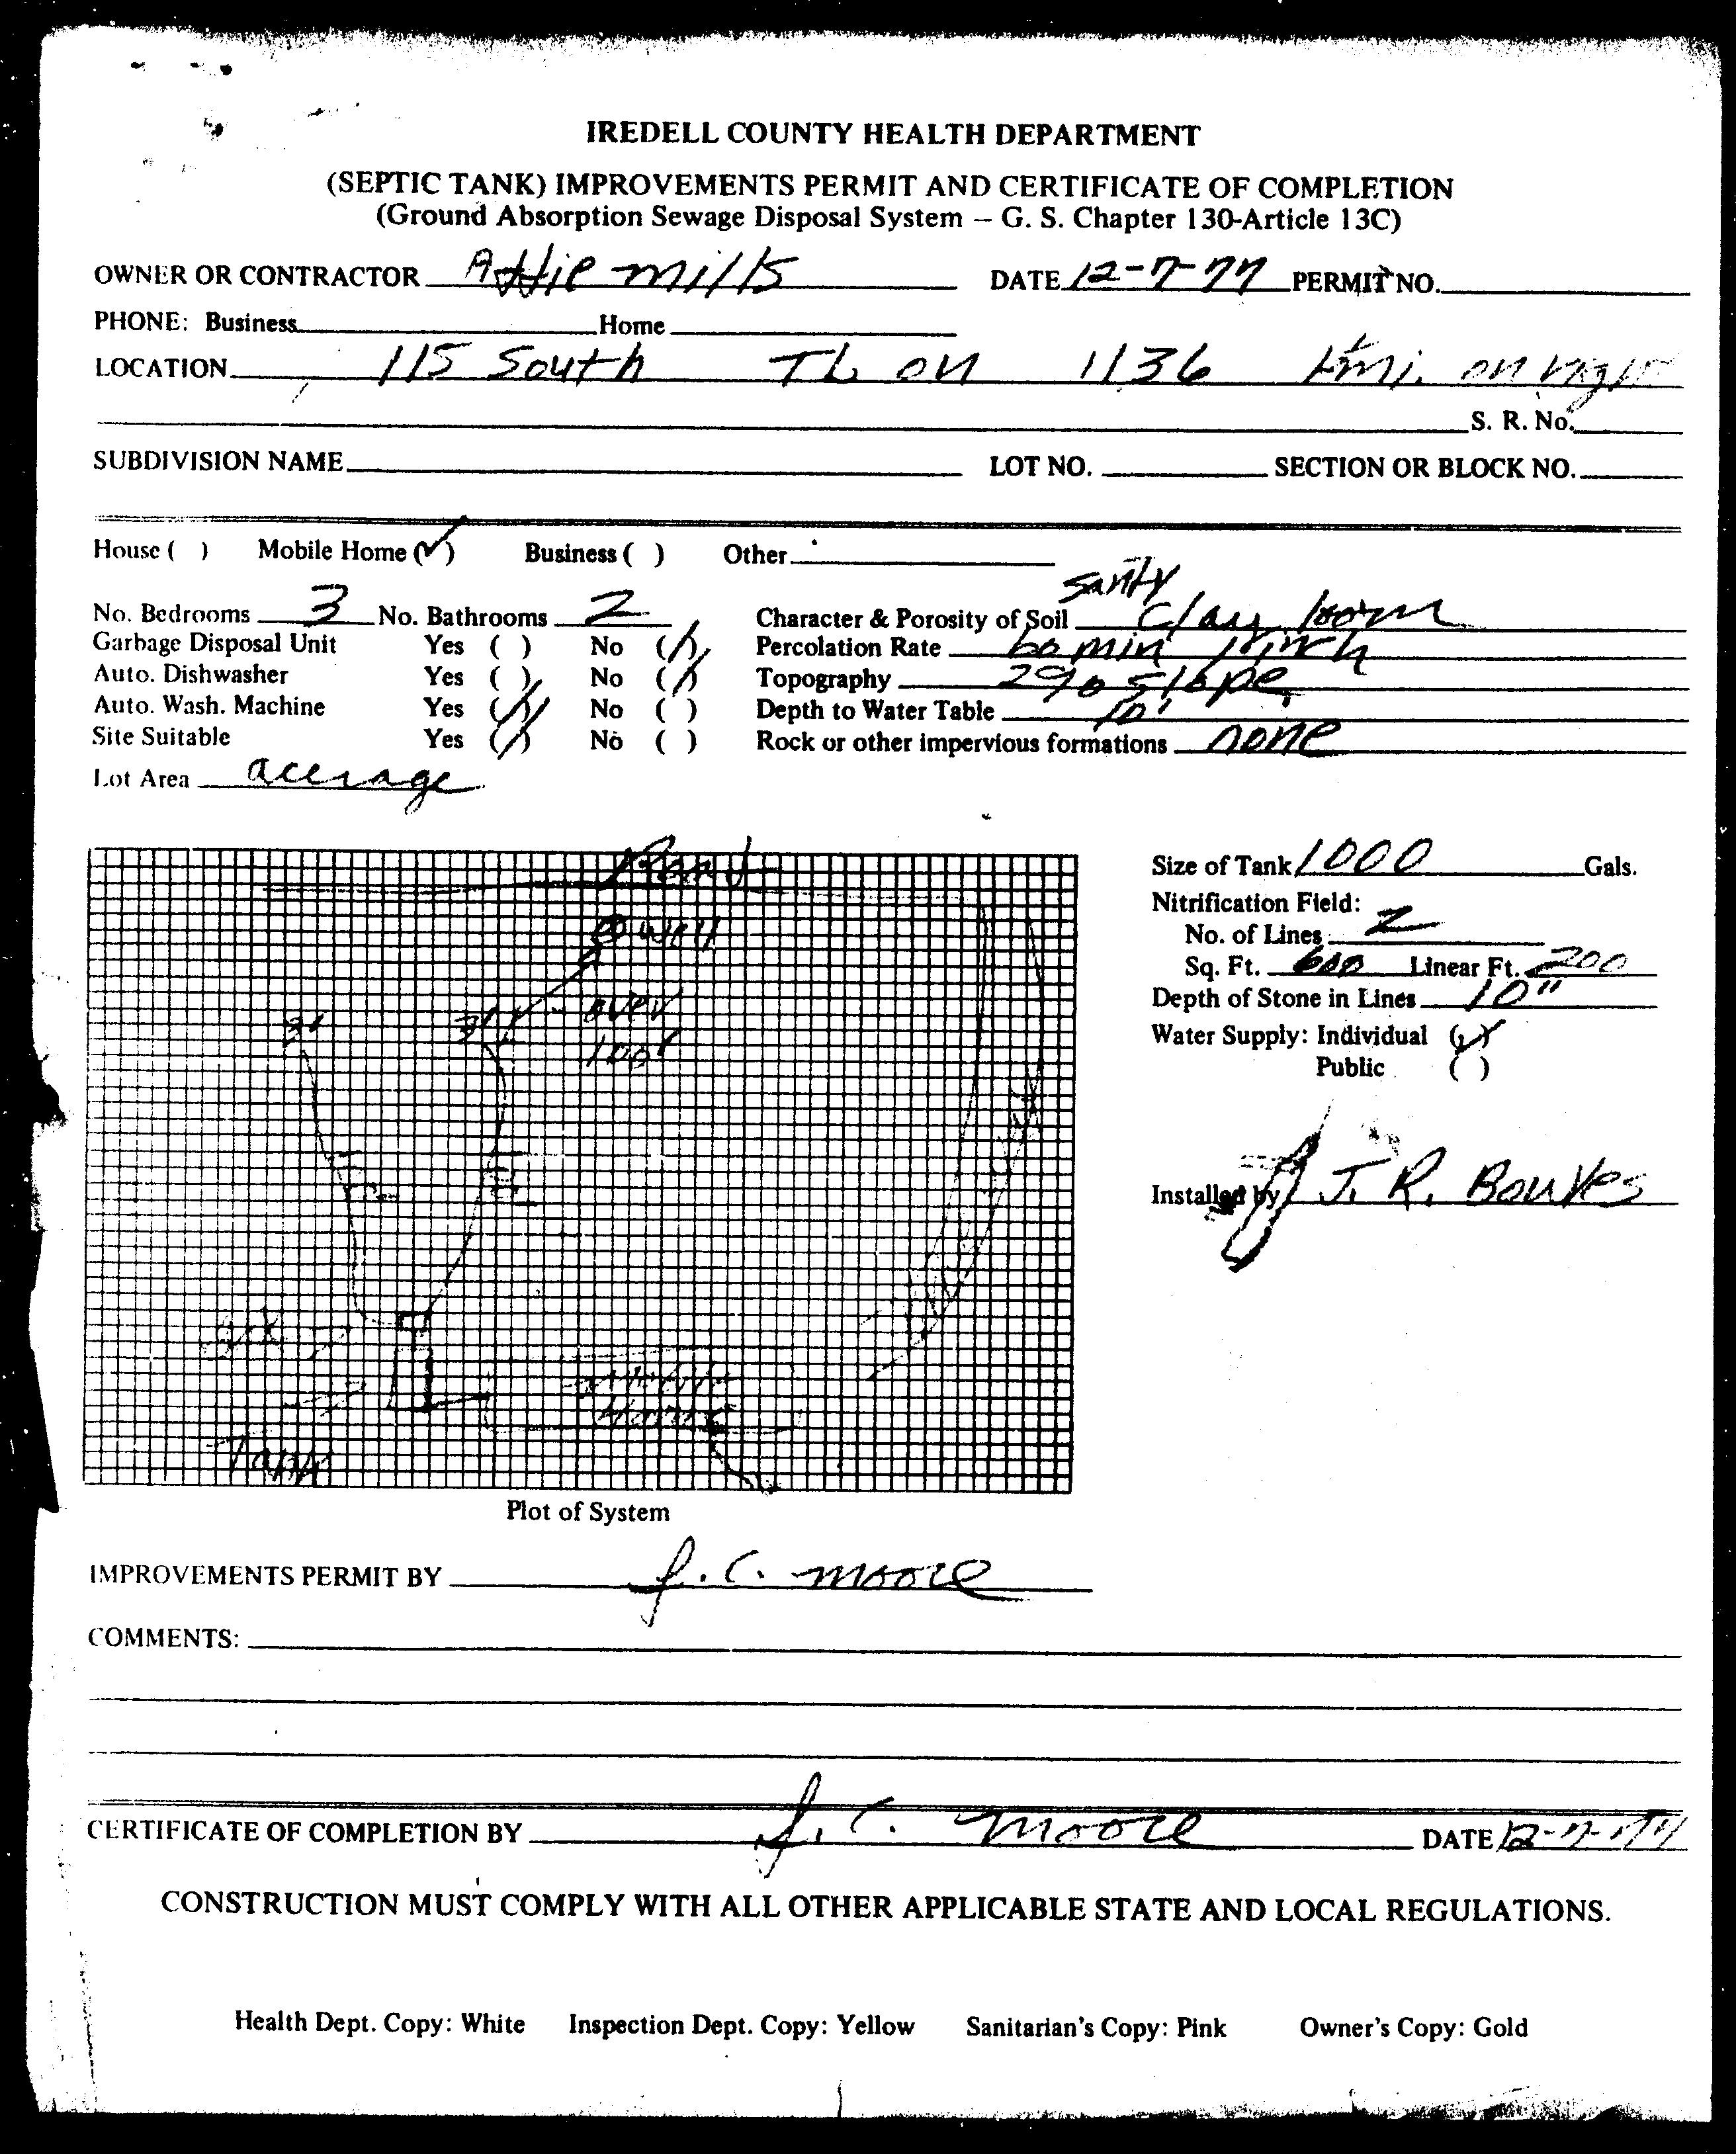 IREDELL COUNTY HEALTH DEPARTMENT
(SEPTIC TANK) IMPROVEMENTS PERMIT AND CERTIFICATE OF COMPLETION
(Ground Absorption Sewage Disposal System – G. S. Chapter 130-Article 13C)
OWNER OR CONTRACTOR Attie mills DATE 12-7-77 PERMIT NO.
PHONE: Business Home
LOCATION 115 South TL on 1136 mi. on right
S. R. No.
SUBDIVISION NAME LOT NO. SECTION OR BLOCK NO.
House ( ) Mobile Home (✓) Business ( ) Other
Sandy
No. Bedrooms 3 No. Bathrooms 2 Character & Porosity of Soil Clay loam
Garbage Disposal Unit Yes ( ) No (/) Percolation Rate 60 min 1 inch
Auto. Dishwasher Yes ( ) No (/) Topography 2% slope
Auto. Wash. Machine Yes (/) No ( ) Depth to Water Table 10'
Site Suitable Yes (/) No ( ) Rock or other impervious formations none
Lot Area acerage
Road
well
over
100'
3'
3'
Tank
Home
Plot of System
Size of Tank 1000 Gals.
Nitrification Field:
No. of Lines 2
Sq. Ft. 600 Linear Ft. 200
Depth of Stone in Lines 10"
Water Supply: Individual (✓)
Public ( )
Installed by J. R. Bowles
IMPROVEMENTS PERMIT BY J. C. moore
COMMENTS:
CERTIFICATE OF COMPLETION BY J. C. moore DATE 12-7-77
CONSTRUCTION MUST COMPLY WITH ALL OTHER APPLICABLE STATE AND LOCAL REGULATIONS.
Health Dept. Copy: White Inspection Dept. Copy: Yellow Sanitarian's Copy: Pink Owner's Copy: Gold